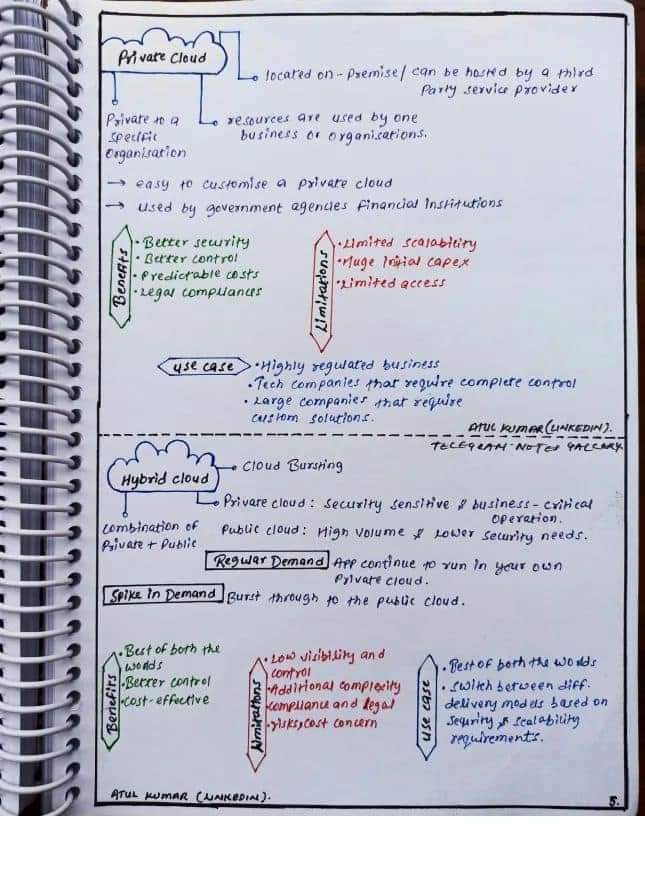 Private Cloud
located on-premise/ can be hosted by a third
Party service provider
Private to a
specific
organisation
resources are used by one
business or organisations.
→ easy to customise a private cloud
→ used by government agencies financial institutions
Benefits
• Better security
• Better control
• Predictable costs
• Legal compliances
Limitations
• Limited scalability
• Huge Initial capex
• Limited access
use case
• Highly regulated business
• Tech companies that require complete control
• Large companies that require
custom solutions.
ATUL KUMAR (LINKEDIN).
TELEGRAM - NOTES GALLERY.
Hybrid cloud
Cloud Bursting
combination of
Private + Public
Private cloud : Security sensitive & business-critical
operation.
Public cloud : High volume & Lower security needs.
Regular Demand App continue to run in your own
Private cloud.
Spike in Demand Burst through to the public cloud.
Benefits
• Best of both the
worlds
• Better control
• cost-effective
limitations
• Low visibility and
control
• Additional complexity
• compliance and legal
• risks, cost concern
use case
• Best of both the worlds
• switch between diff.
delivery models based on
security & scalability
requirements.
ATUL KUMAR (LINKEDIN).
5.